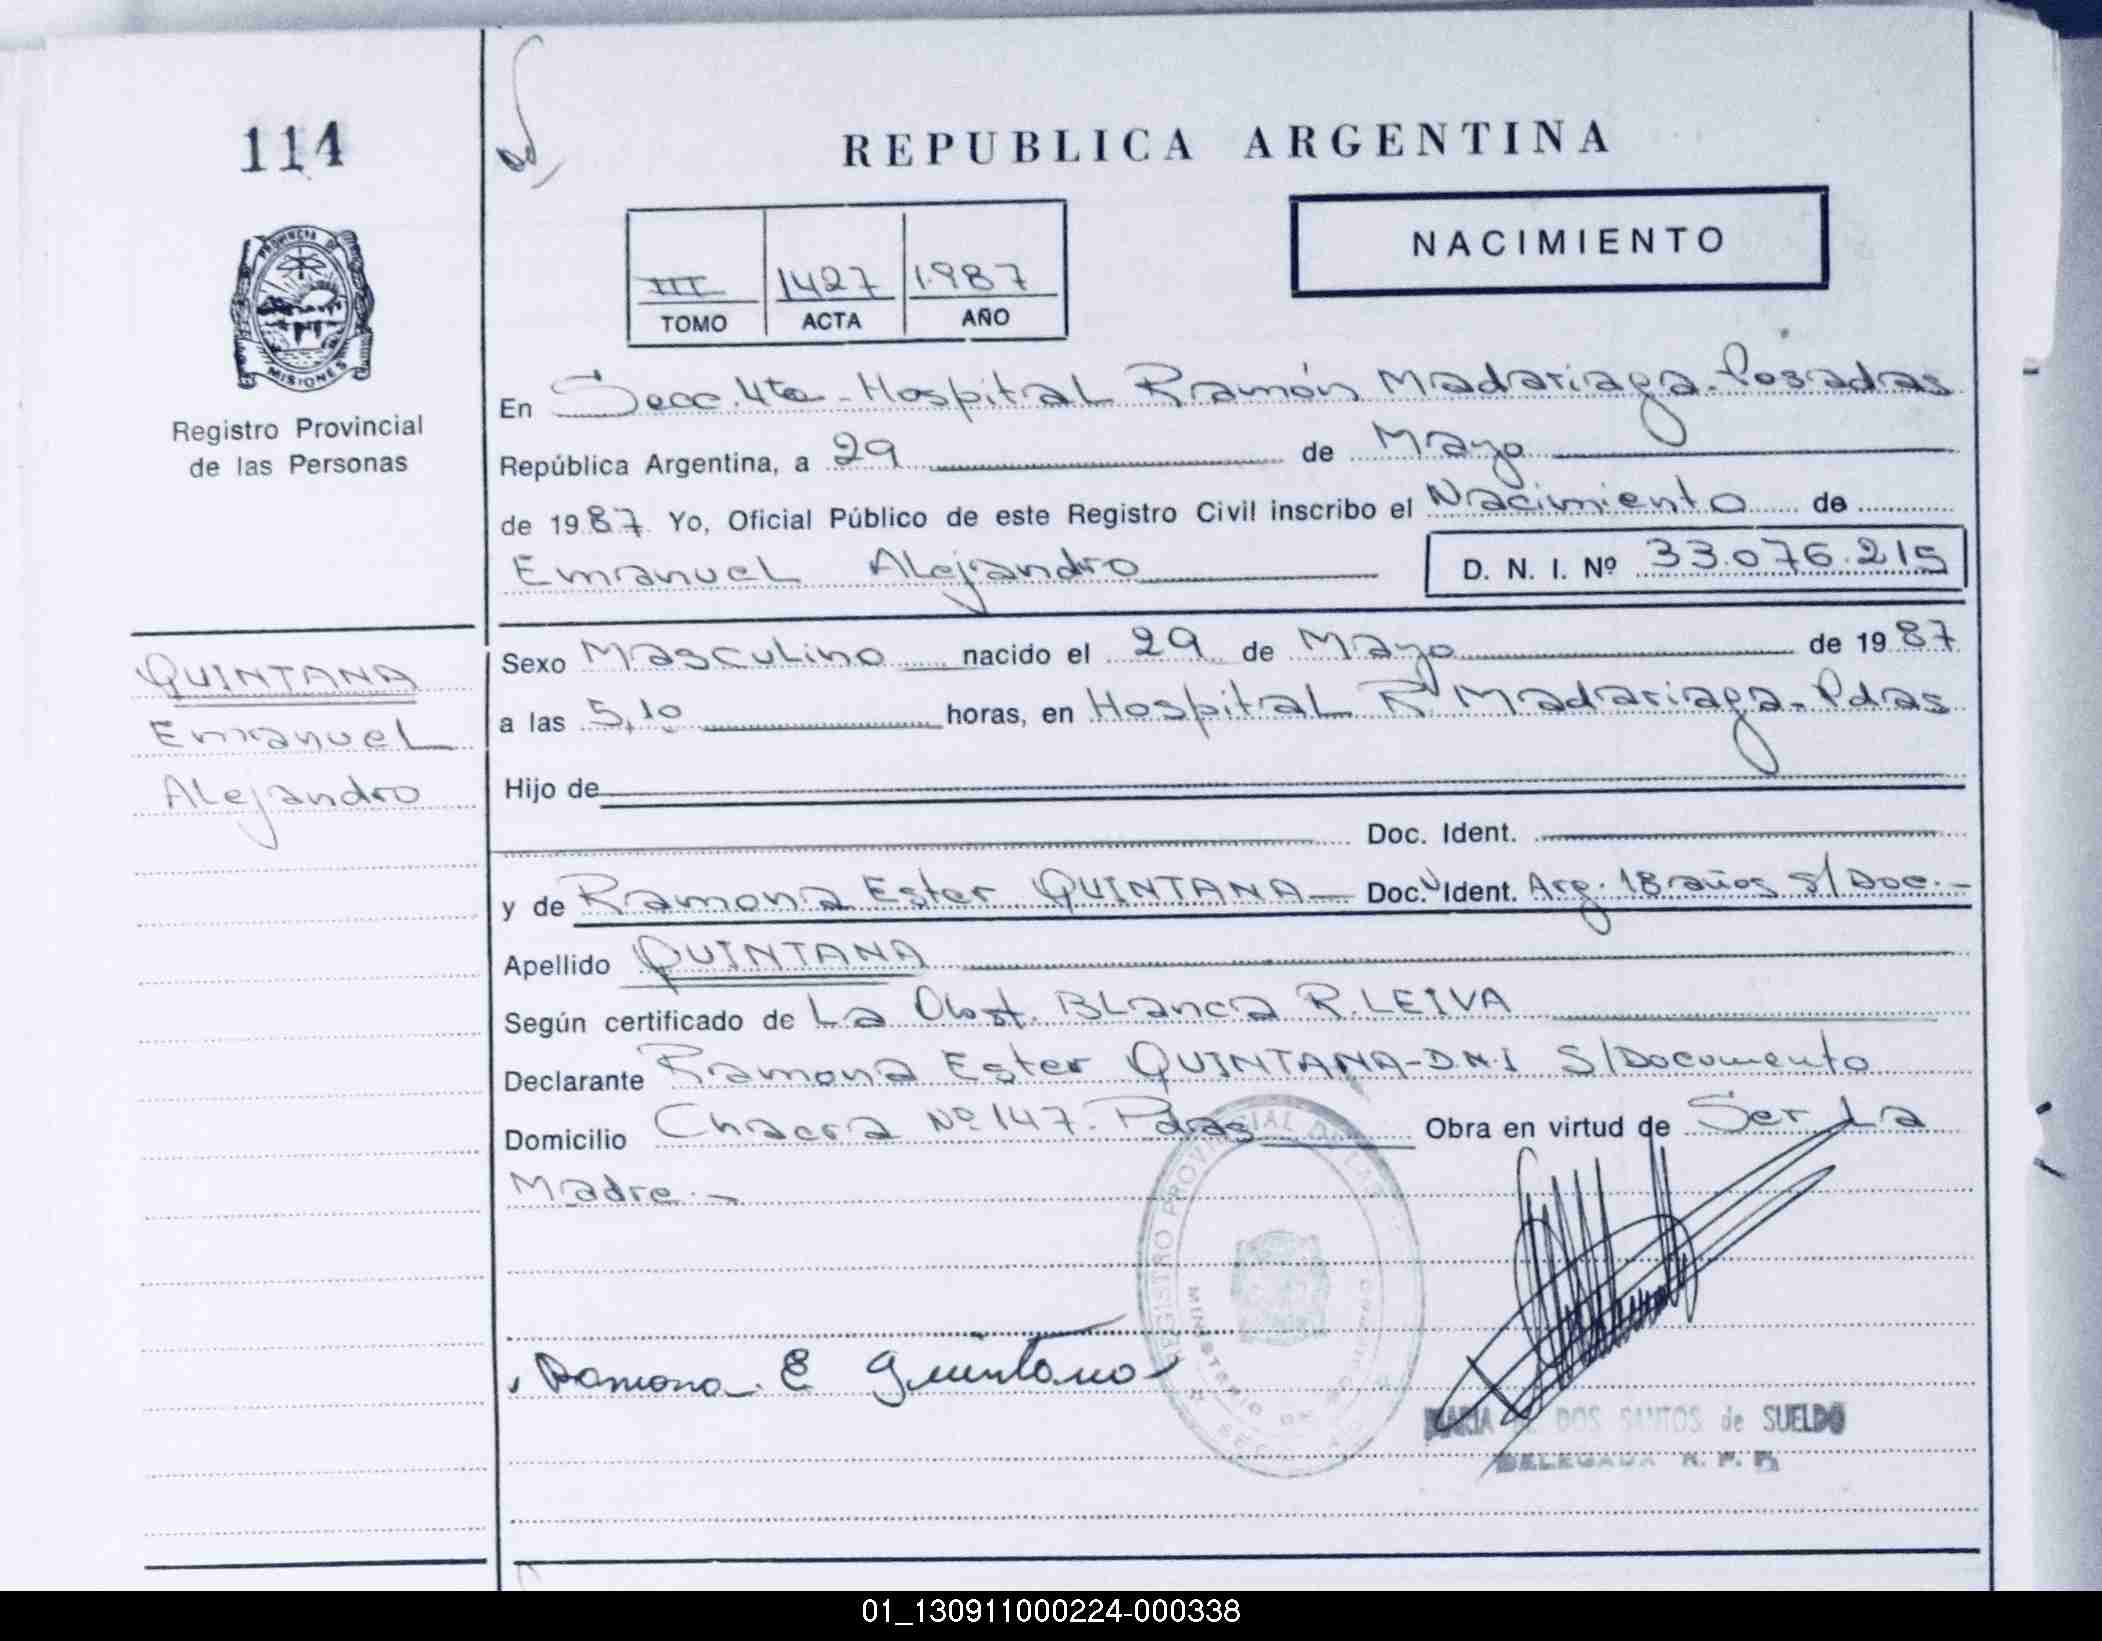 114
REPUBLICA ARGENTINA
NACIMIENTO
III 1427 1.987
TOMO ACTA AÑO
PROVINCIA DE
MISIONES
Registro Provincial
de las Personas
En Secc. 4ta - Hospital Ramón Madariaga - Posadas
República Argentina, a 29 de Mayo
de 1987 Yo, Oficial Público de este Registro Civil inscribo el Nacimiento de
Emanuel Alejandro D. N. I. Nº 33.076.215
QUINTANA
Emanuel
Alejandro
Sexo Masculino nacido el 29 de Mayo de 1987
a las 5,10 horas, en Hospital R Madariaga - Pdas
Hijo de
Doc. Ident.
y de Ramona Ester QUINTANA — Doc. Ident. Arg. 18 años S/Doc. -
Apellido QUINTANA
Según certificado de La Obst. Blanca R. LEIVA
Declarante Ramona Ester QUINTANA - D.N.I S/Documento
Domicilio Chacra Nº 147. Pdas Obra en virtud de Ser La
Madre. -
REGISTRO PROVINCIAL DE LAS
MINISTERIO DE
Ramona E Quintana
MARIA DOS SANTOS de SUELDO
DELEGADA R. P. P.
01_130911000224-000338